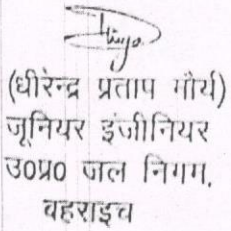 (धीरेन्द्र प्रताप मौर्य)
जूनियर इंजीनियर
उ०प्र० जल निगम,
वहराइच